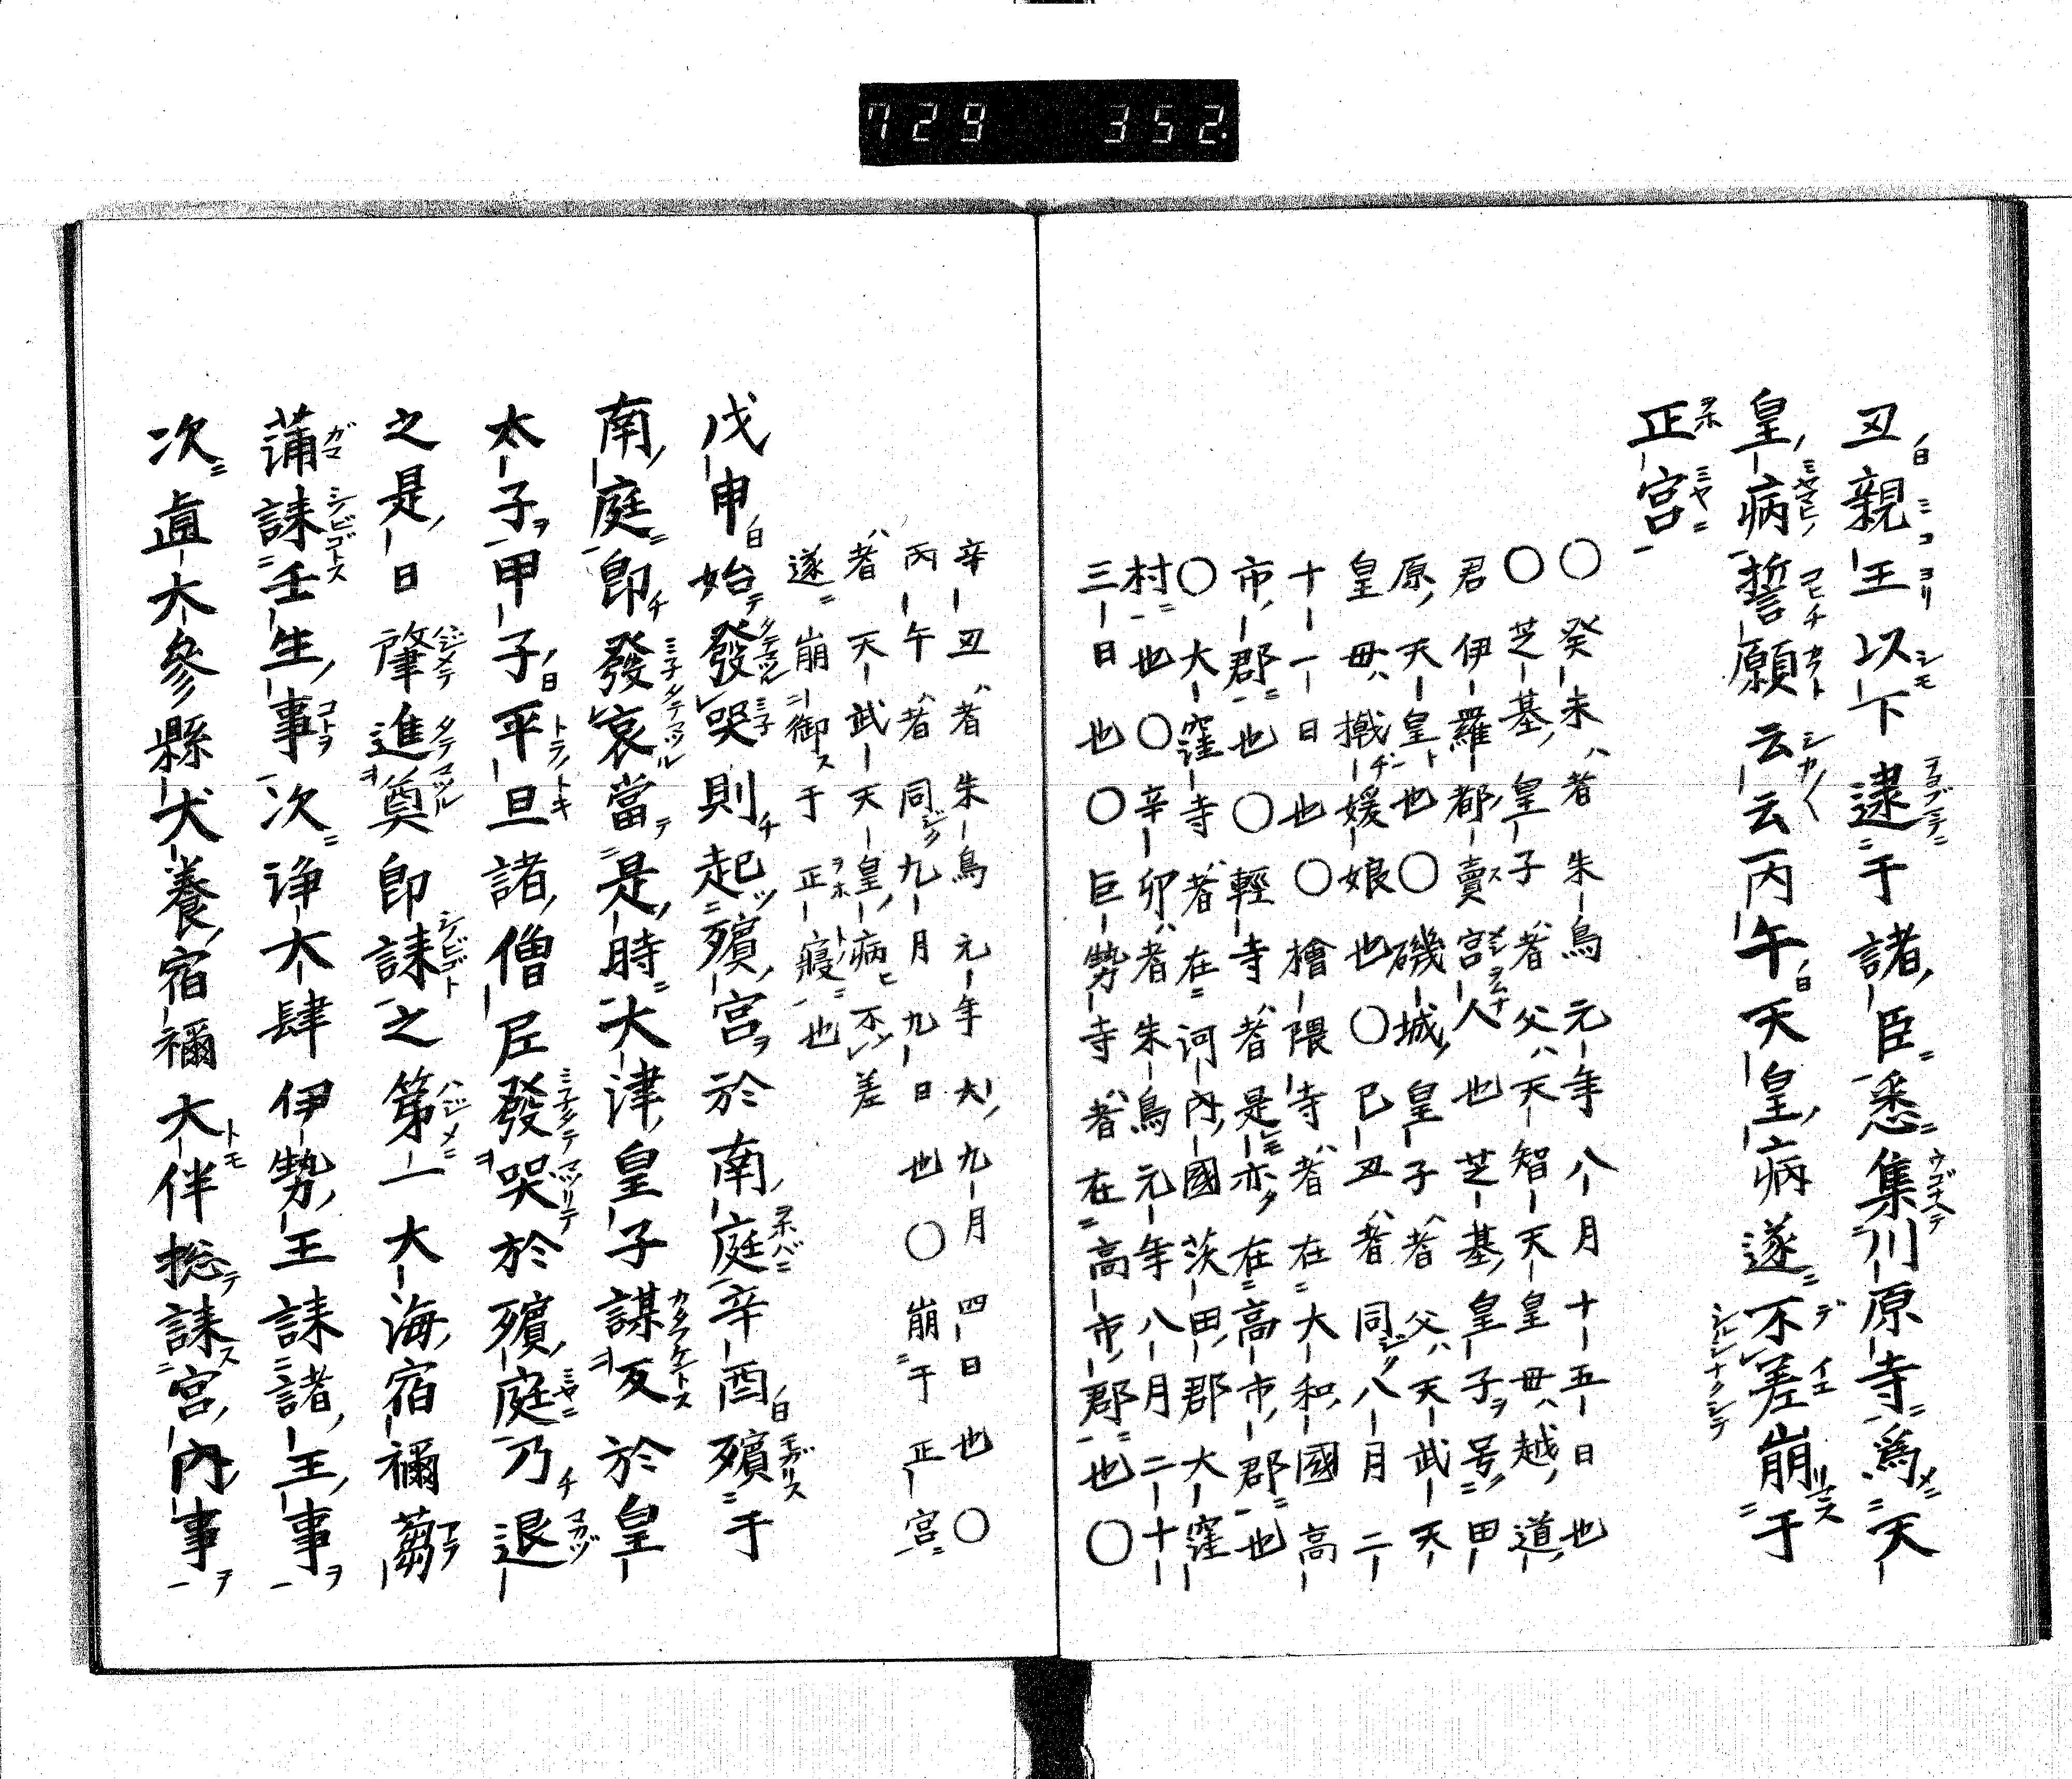 729 352
丑親王以下逮于諸臣悉集川原寺為天
皇病誓願云云丙午天皇病遂不差崩于
正宮
〇癸未者朱鳥元年八月十五日也
〇芝基皇子者父天智天皇毋越道
君伊羅都賣宮人也芝基皇子号田
原天皇也〇磯城皇子者父天武天
皇毋擑媛娘也〇己丑者同八月二
十一日也〇檜隈寺者在大和國高
市郡也〇輕寺者是亦在高市郡也
〇大窪寺者在河內國茨田郡大窪
村也〇辛卯者朱鳥元年八月二十
三日也〇巨勢寺者在高市郡也〇
辛丑者朱鳥元年大九月四日也〇
丙午者同九月九日也〇崩于正宮
者天武天皇病不差
遂崩御于正寢也
戊申始發哭則起殯宮於南庭辛酉殯于
南庭即發哀當是時大津皇子謀反於皇
太子甲子平旦諸僧尼發哭於殯庭乃退
之是日肇進奠即誄之第一大海宿禰蒭
蒲誄壬生事次诤大肆伊勢王誄諸王事
次直大參縣犬養宿禰大伴捴誄宮內事